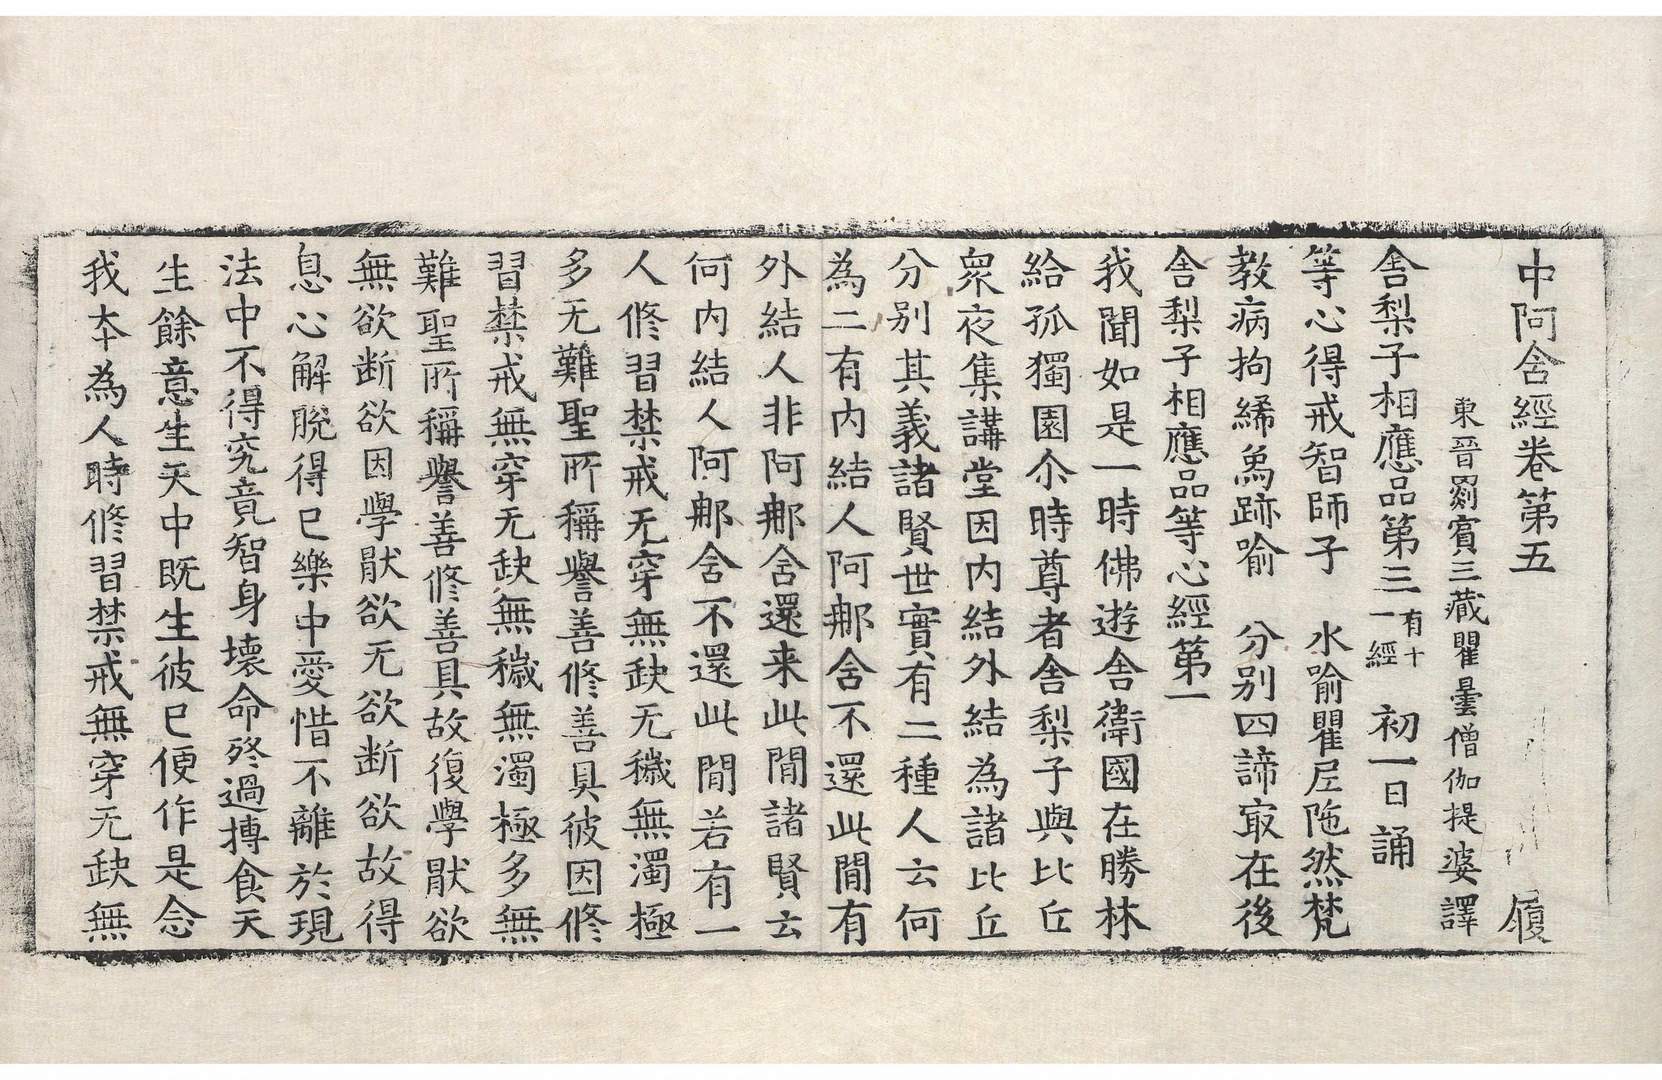 中阿含經卷第五　履
東晉罽賓三藏瞿曇僧伽提婆譯
舍梨子相應品第三有十一經　初一日誦
等心得戒智師子　水喻瞿尼陁然梵
教病拘絺象跡喻　分別四諦㝡在後
舍梨子相應品等心經第一
我聞如是一時佛遊舍衛國在勝林
給孤獨園尒時尊者舍梨子與比丘
衆夜集講堂因內結外結為諸比丘
分別其義諸賢世實有二種人云何
為二有內結人阿那含不還此間有
外結人非阿那含還来此間諸賢云
何內結人阿那含不還此間若有一
人修習禁戒无穿無缺无穢無濁極
多无難聖所稱譽善修善具彼因修
習禁戒無穿无缺無穢無濁極多無
難聖所稱譽善修善具故復學猒欲
無欲断欲因學猒欲无欲断欲故得
息心解脫得已樂中愛惜不離於現
法中不得究竟智身壞命終過摶食天
生餘意生天中既生彼已便作是念
我本為人時修習禁戒無穿无缺無